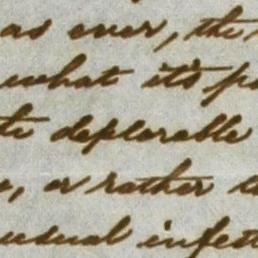 as ever, the
what it's
deplorable
or rather
usual